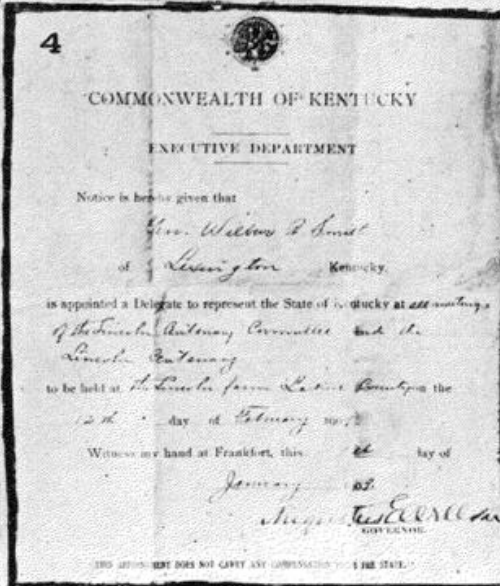 4
COMMONWEALTH OF KENTUCKY
EXECUTIVE DEPARTMENT
Notice is hereby given that
Gen. Wilbur R Smith
of Lexington Kentucky,
is appointed a Delegate to represent the State of Kentucky at all meetings
of the Lincoln Centenary Committee and the
Lincoln Centenary
to be held at the Lincoln farm Larue County on the
12th day of February 190
Witness my hand at Frankfort, this day of
January 09.
Augustus E Willson
GOVERNOR.
THIS APPOINTMENT DOES NOT CARRY ANY COMPENSATION FROM THE STATE.